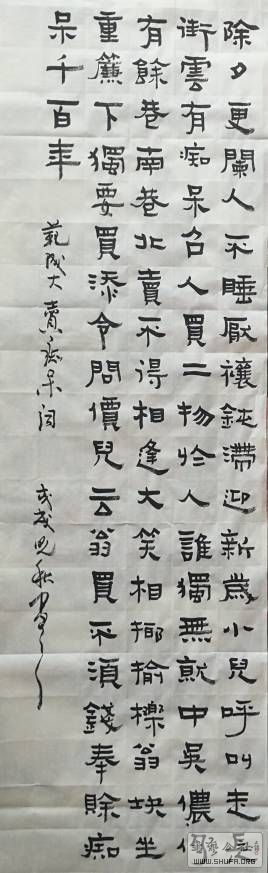 除夕更闌人不睡厭禳鈍滯迎新歲小兒呼叫走長
街雲有痴呆召人買二物於人誰獨無就中吳儂仍
有餘巷南巷北賣不得相逢大笑相揶揄櫟翁塊坐
重簾下獨要買添令問價兒云翁買不須錢奉賒痴
呆千百年
范成大賣痴呆詞
戊戌晚秋
WWW.SHUFA.ORG